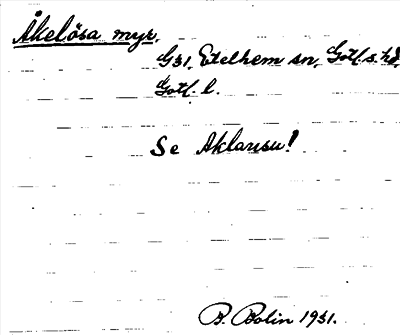 Åkelösa myr.
G31. Etelhem sn, Gotl. s. hd,
Gotl. l.
Se Aklausu!
B. Bolin 1931.